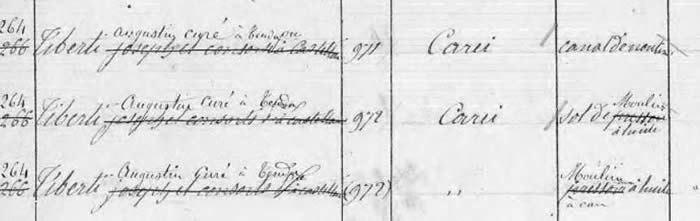 264
266 Tiberti Augustin curé à Tende
joseph et consorts à Castellar 971 Carei canal de moulin
264
266 Tiberti Augustin Curé à Tende
joseph et consorts à castellar 972 Carei sol de Moulin
pressoir
à huile
264
266 Tiberti Augustin Curé à Tende
joseph et consorts à castellar (972) " Moulin
pressoir à huile
à eau